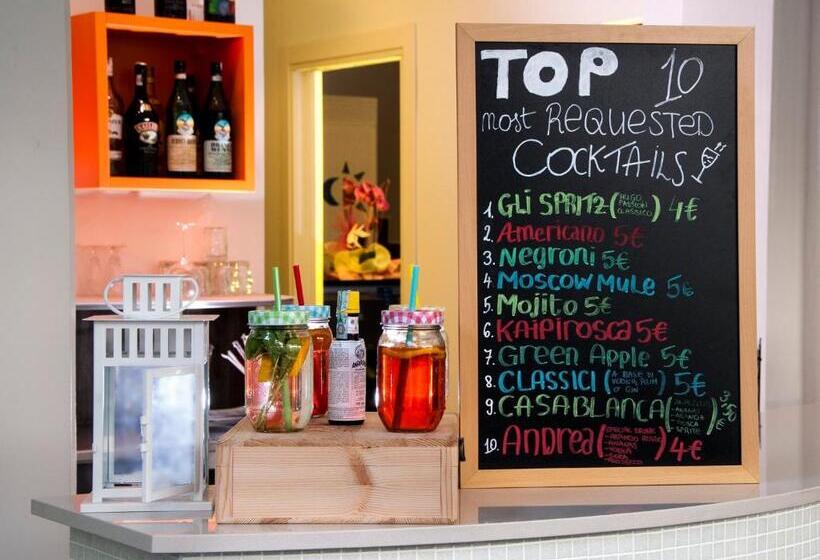 TOP 10
most REQUESTED
COCKTAILS
1. GLI SPRITZ (HUGO PASSION CLASSICO) 4€
2. Americano 5€
3. Negroni 5€
4. MOSCOW MULE 5€
5. Mojito 5€
6. KAIPIROSCA 5€
7. Green Apple 5€
8. CLASSICI (A BASE DI VODKA RUM O GIN) 5€
9. CASABLANCA
10. Andrea 4€